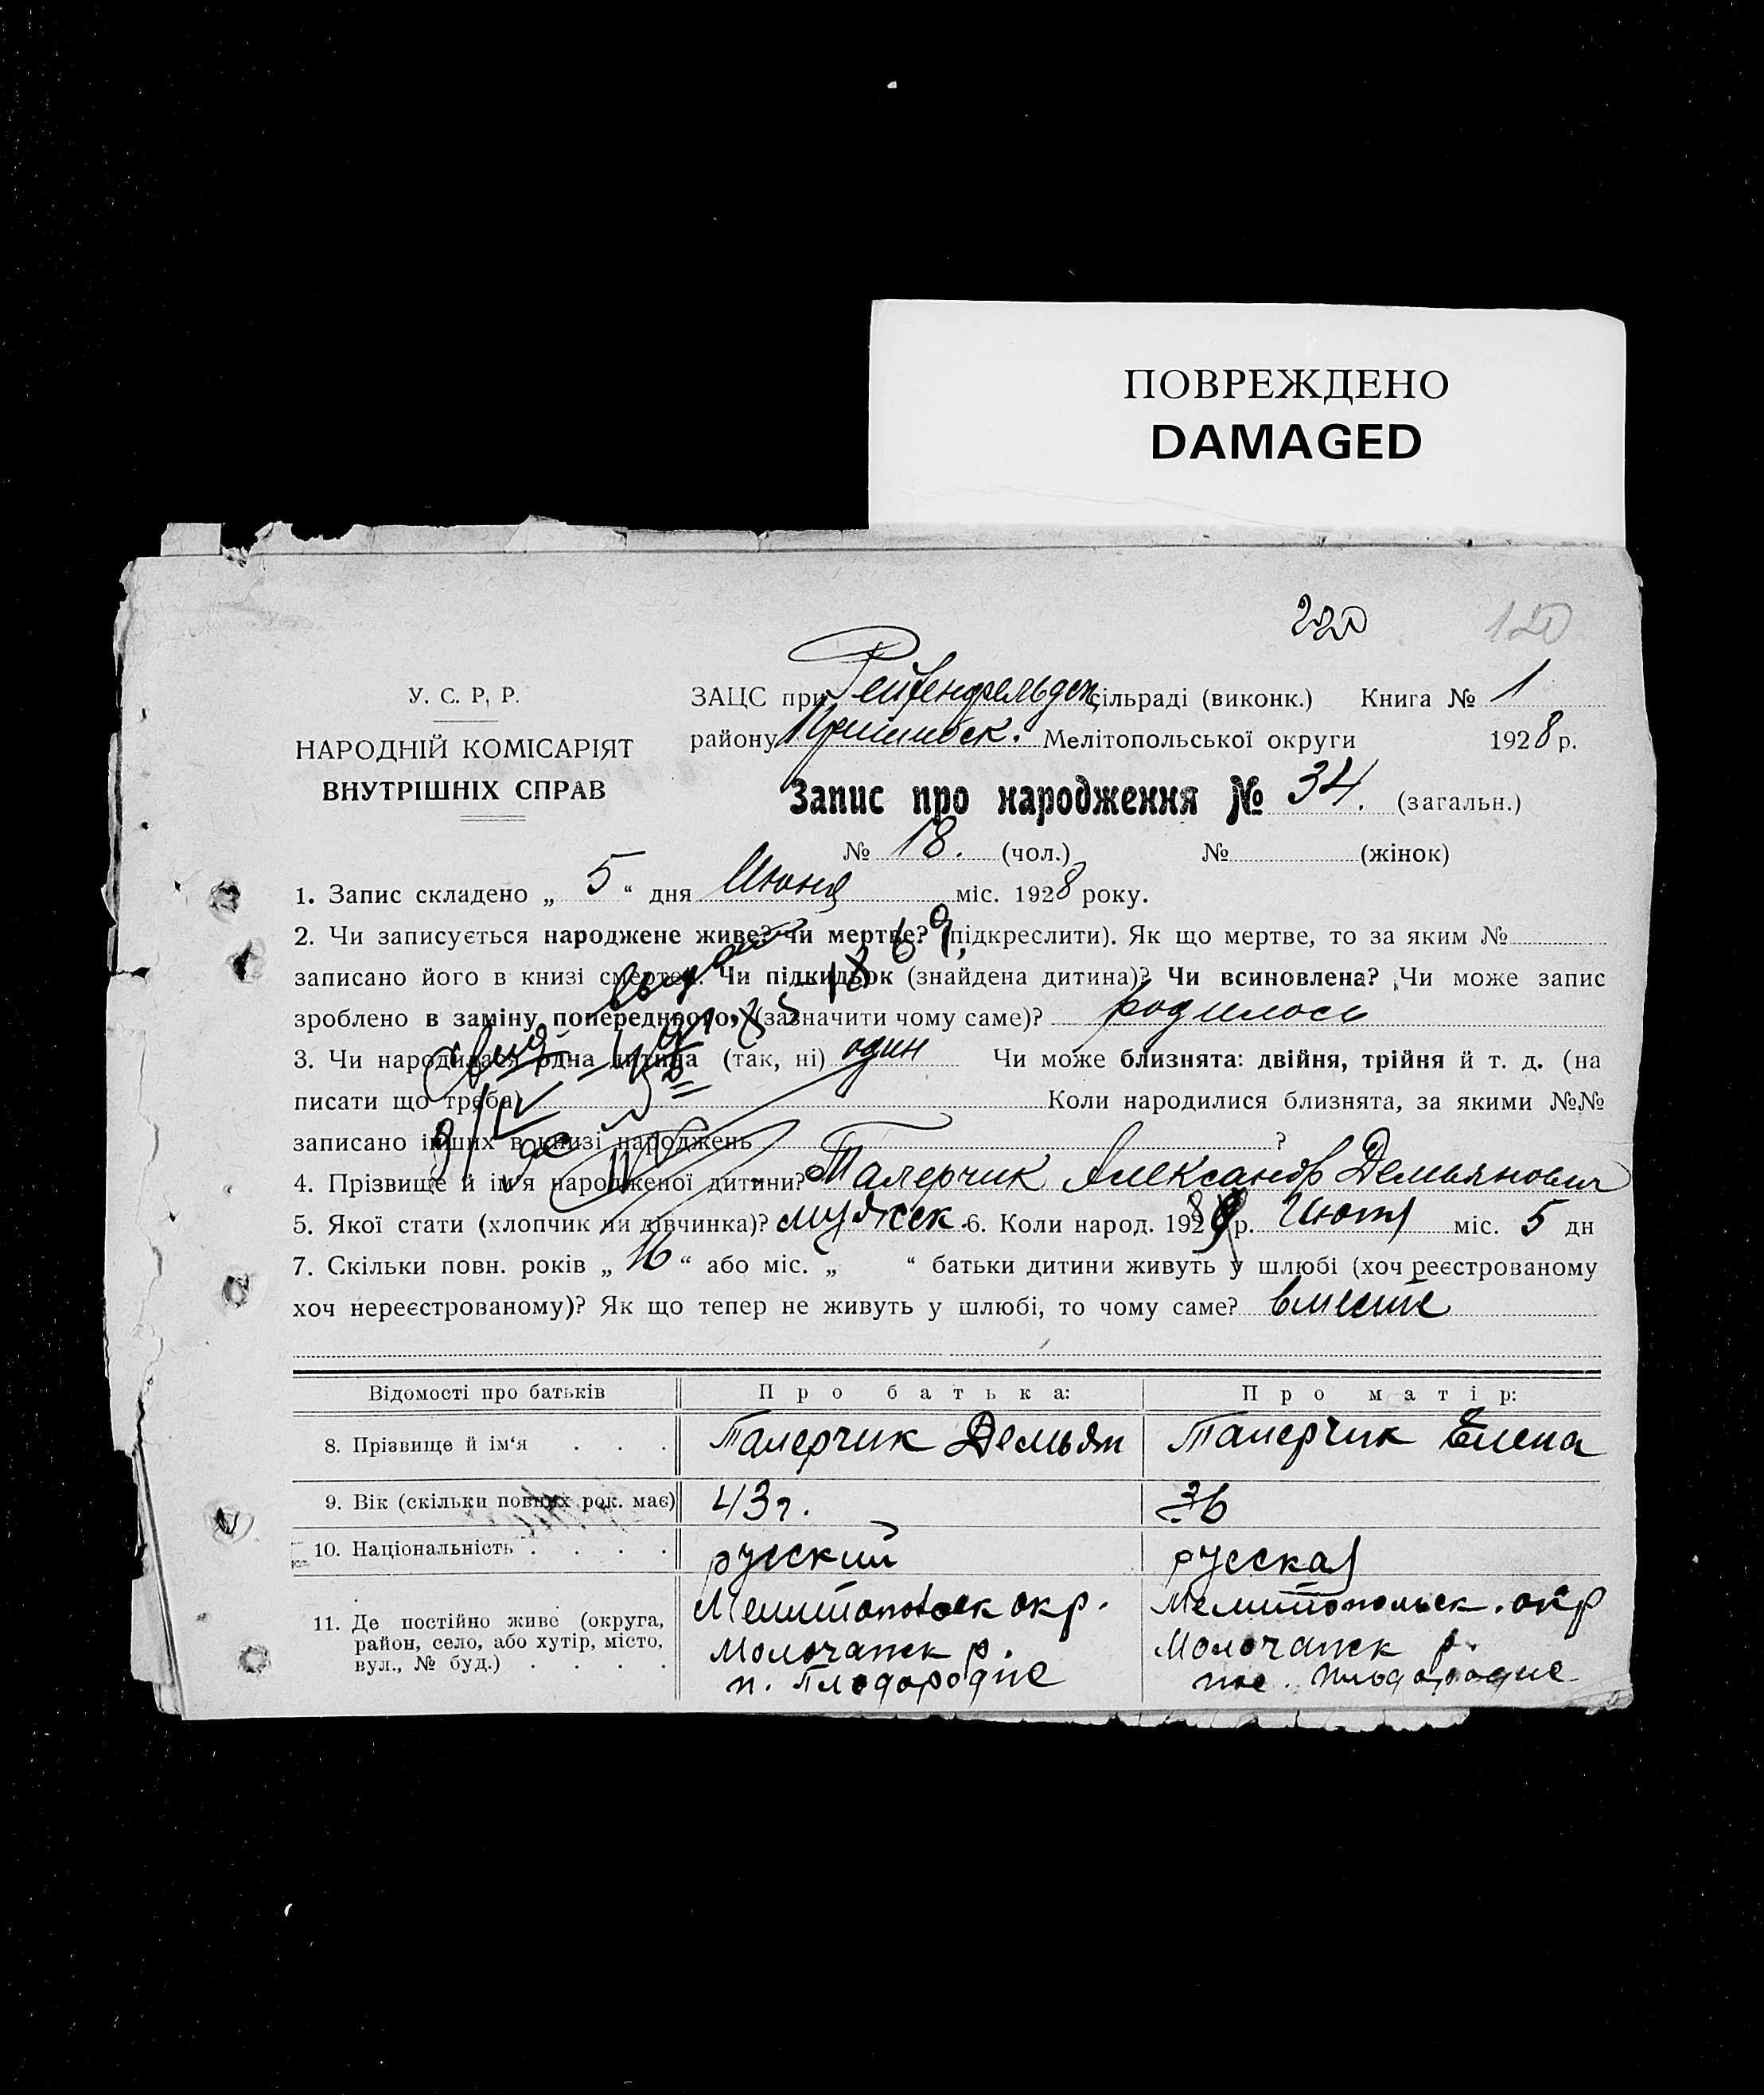 ПОВРЕЖДЕНО
DAMAGED
220 120
У. С. Р. Р.
НАРОДНІЙ КОМІСАРІЯТ
ВНУТРІШНІХ СПРАВ
ЗАЦС при Рейхенфельдск сільраді (виконк.) Книга № 1
району Пришибск. Мелітопольської округи 1928 р.
Запис про народження № 34. (загальн.)
№ 18. (чол.) № (жінок)
1. Запис складено „ 5 “ дня Июня міс. 1928 року.
2. Чи записується народжене живе? чи мертве? (підкреслити). Як що мертве, то за яким №
записано його в книзі смертей. Чи підкидьок (знайдена дитина)? Чи всиновлена? Чи може запис
зроблено в заміну попереднього, (зазначити чому саме)? родилось
3. Чи народилася одна дитина (так, ні) один Чи може близнята: двійня, трійня й т. д. (на
писати що треба) Коли народилися близнята, за якими №№
записано інших в книзі народжень ?
4. Прізвище й ім'я народженої дитини? Талерчик Александр Демьянович
5. Якої стати (хлопчик чи дівчинка)? мужск. 6. Коли народ. 1928 р. Июня міс. 5 дн
7. Скільки повн. років „ 16 “ або міс. „ “ батьки дитини живуть у шлюбі (хоч реєстрованому
хоч нереєстрованому)? Як що тепер не живуть у шлюбі, то чому саме? вместе
Відомості про батьків Про батька: Про матір:
8. Прізвище й ім‘я . . . Талерчик Демьян Талерчик Елена
9. Вік (скільки повних рок. має) 43 г. 36
10. Національність . . . . русский русская
11. Де постійно живе (округа, район, село, або хутір, місто, вул., № буд.) . . . .
Мелитопольск окр. Мелитопольск. окр
Молочанск р. Молочанск р.
п. Плодородие пос. Плодородие